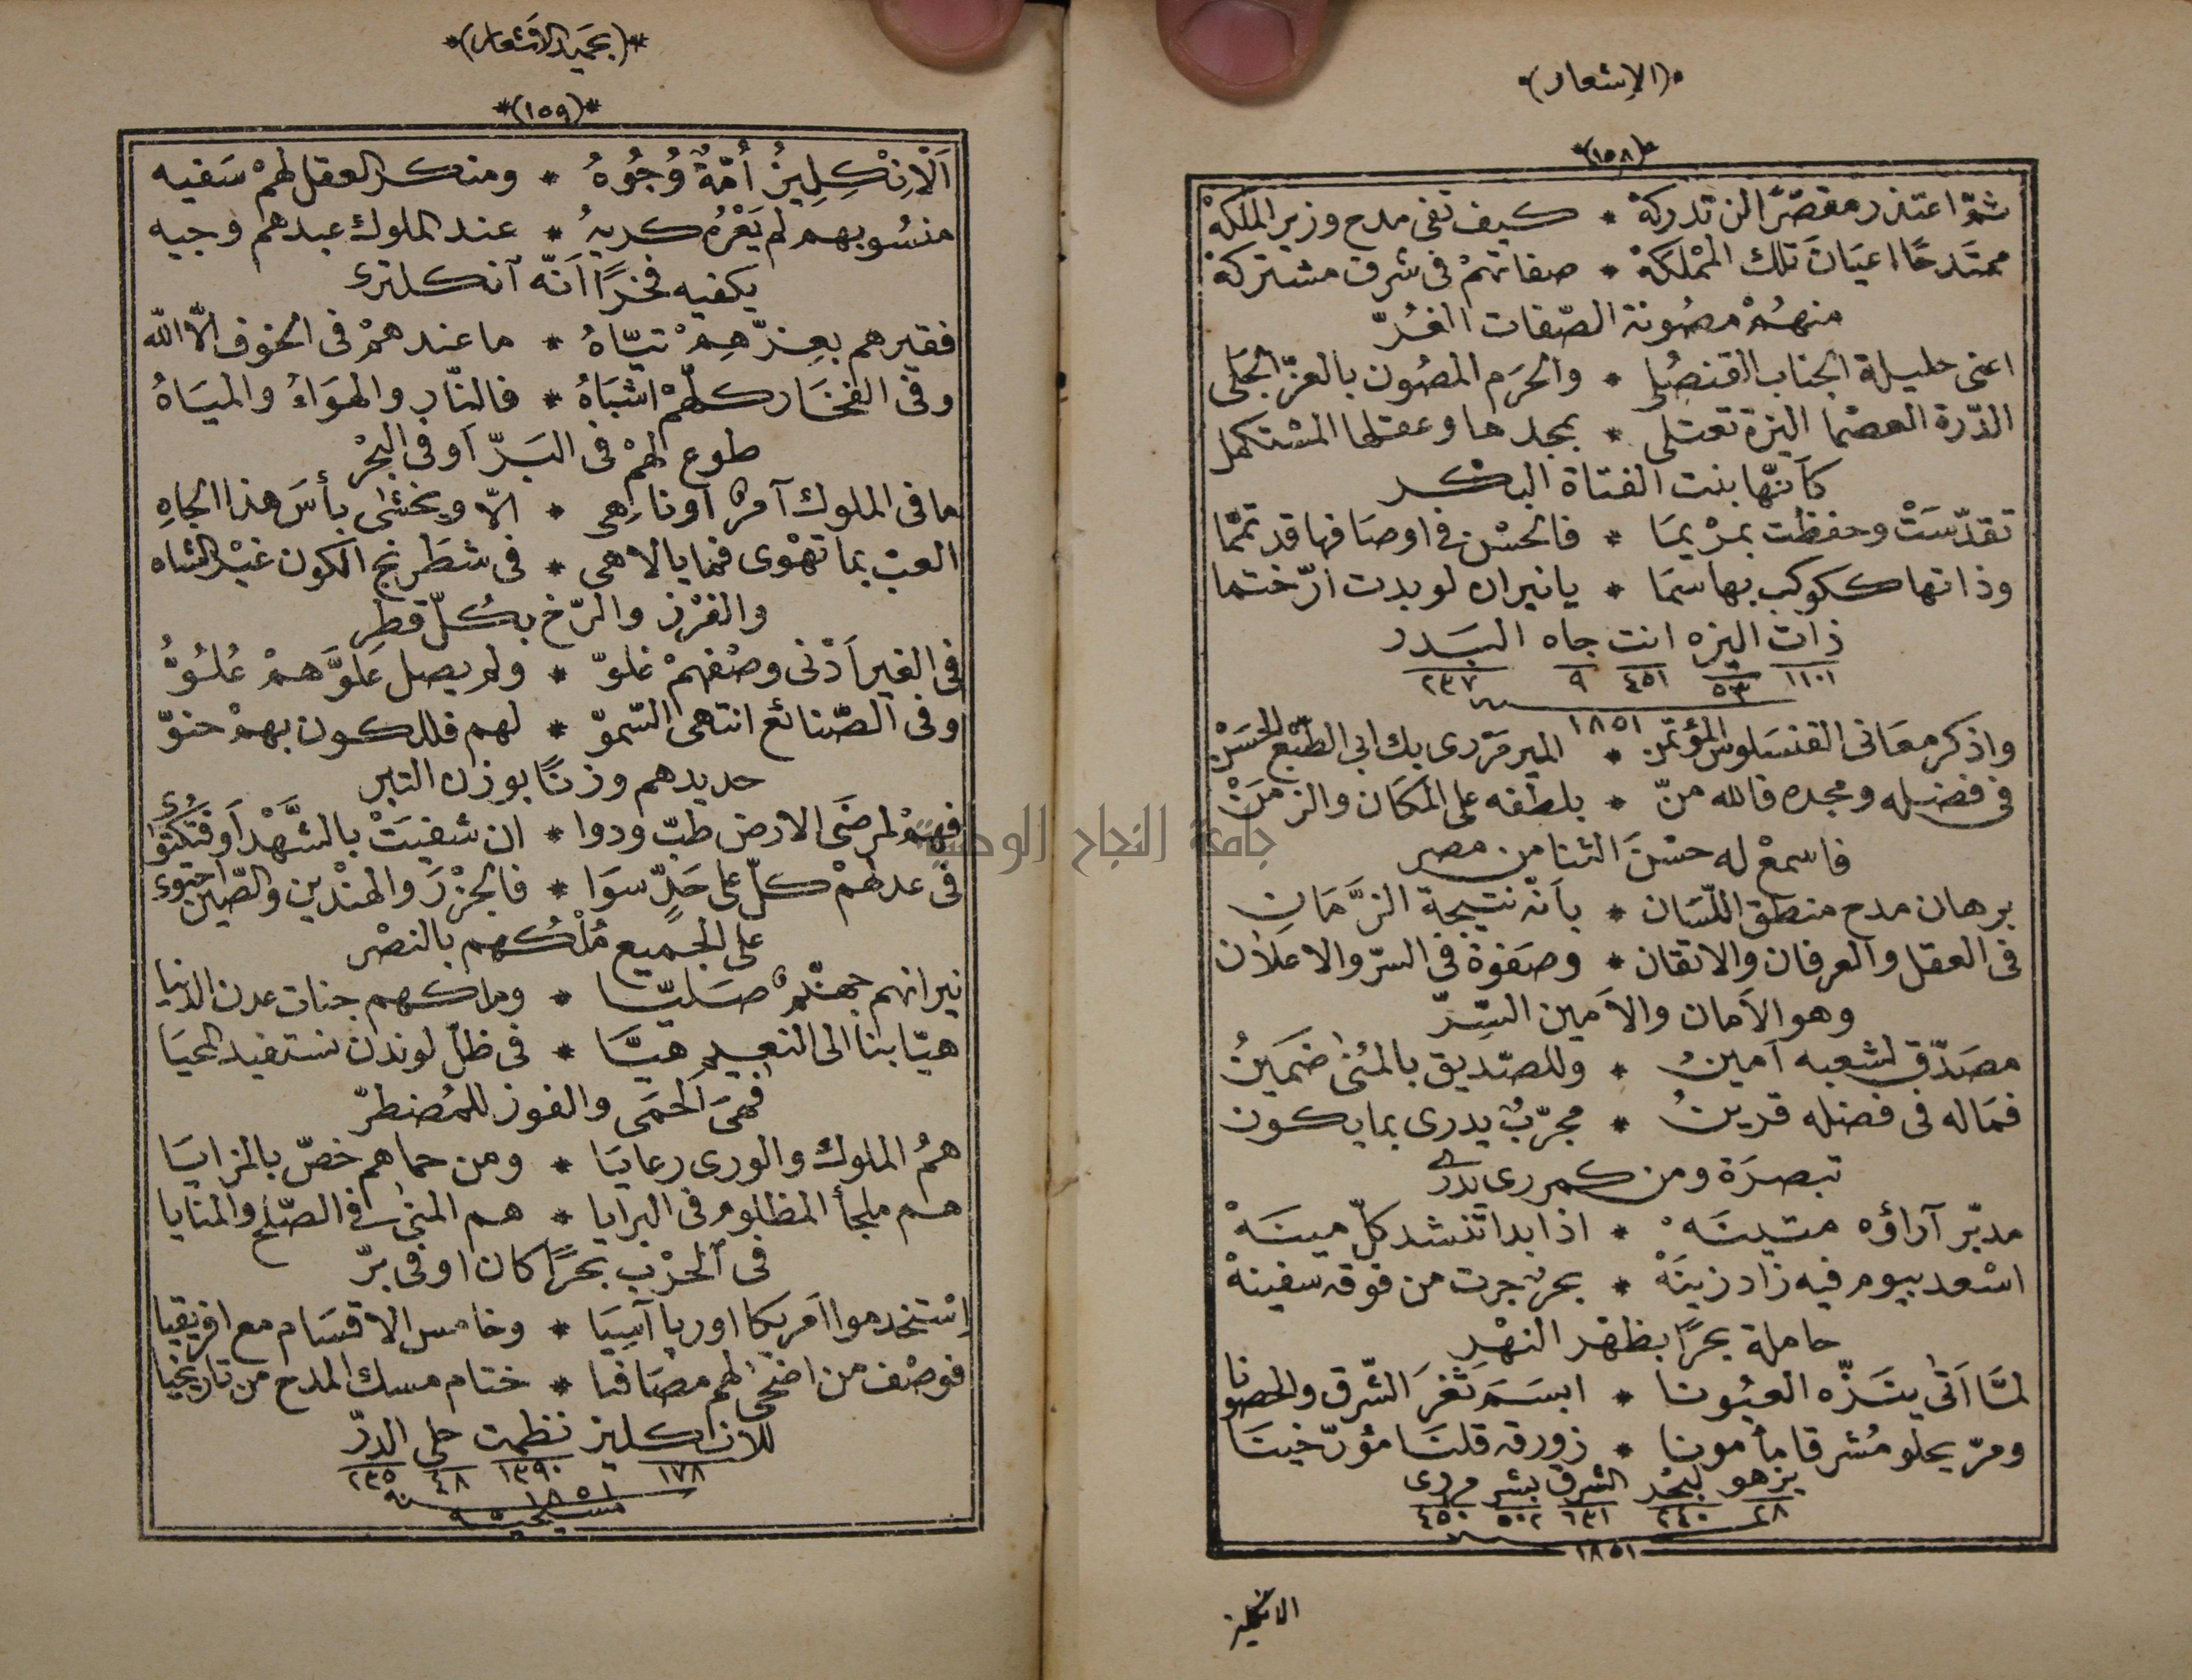 *(الإشعار)*
*(١٥٨)*
ثمّ اعتذر مقصّرًا لن تدركهْ * كيف تفى مدح وزير المملكهْ
ممتَدحًا اعيَانَ تلك المْملكهْ * صفاتهمْ فى شرف مشتركهْ
منهمْ مصُونة الصّفات الغُرّ
اعنى حليلة الجناب القنصُلى * والحرَم المصُون بالعزّ الجَلى
الدّرة العصْما اليزة تعتلى * بمجدها وعقلها المستكمل
كأنّها بنت الفتاة البكر
تقدّسَتْ وحفظت بمرْيمَا * فالحسْن فى اوصَافها قد تمّما
وذاتها ككوكب بها سَمَا * يا نيران لو بدت ارّختما
ذات اليزه انت جاه البَدر
١١٠١ ٥٣ ٤٥١ ٩ ٢٣٧
١٨٥١
واذكر معَانى القنسَلوس المؤتمن * المير مَرّى بك ابى الطبْع الحسَنْ
فى فضله ومجده فالله منّ * بلطفه على المكَان والزمَنْ
فاسمعْ له حسْنَ الثنا من مصر
برهان مدح منطق اللّسَان * بأنّه نتيجة الزَّمَان
فى العقل والعرفان والاتقان * وصَفوة فى السرّ والاعلان
وهو الأمان والأمين السّرّ
مصَدّق لشعبه امينُ * وللصّديق بالمُنى ضَمَينُ
فمَاله فى فضله قرينُ * مجرّبٌ يدرى بما يكون
تبصرَة ومن كمررى يدرى
مدبّر آراؤه متينَهْ * اذا بدا تنشد كلّ مينَهْ
اسْعد بيوم فيه زاد زينَهْ * بحرٌ جرت من فوقه سفينهْ
حاملة بحرًا بظهر النهْر
لمَّا اتى ينَزّه العيُونا * ابسَمَ ثغرَ الشّرق والحصونا
ومرّ يحلو مُشرقا مأمونا * زورقه قلنَا مؤرّخينَا
يزهو لبحْر الشرق بشر مررى
٢٨ ٢٤٠ ٦٣١ ٥٠٢ ٤٥٠
١٨٥١
الانكليز
*(بحميد الاشعار)*
*(١٥٩)*
اَلْاِنْكِلِيزُ أُمّةٌ وُجُوهُ * ومنكر العقل لهمْ سَفيه
منسُوبهم لم يَعْرُه كريهُ * عند الملوك عبدهم وجيه
يكفيه فخرًا اَنّه انكلترى
فقيرهم بعِزّهِمْ تيّاهُ * ما عندهمْ فى الخوف الّا الله
وفى الفخَار كلّهمْ اشبَاهُ * فالنّار والهوَاءُ والميَاهُ
طوع لهمْ فى البَرّ او فى البحْر
ما فى الملوك آمرٌ اوناهى * الّا ويخشى بأسَ هذا الجاهِ
العبْ بما تهْوى فما يا لاهى * فى شطَرنج الكون غيْر الشاه
والفرْز والرّخ بكُلّ قطرِ
فى الغير اَدْنى وصْفهمْ غلوّ * ولم يصل علوَّهمْ عُلُوُّ
وفى الصّنائع انتهى السّموّ * لهم فللكون بهمْ حنوّ
حديدهم وزنًا بوزن التبر
فهمْ لمرضَى الارض طبّ ودوا * ان شفيَتْ بالشَّهْد اَو فتكتوى
فى عدلهمْ كلّ على حَدٍّ سوَا * فالجزْرَ والهنْدين والصّين احتوى
على الجميع مُلْكُهم بالنصْر
نيرانهم جهنّمٌ صَليّا * وملكهم جنات عدن الدنيا
هيّا بنا الى النعيم هيَّا * فى ظلّ لوندن نستفيد المحيَا
فهىَ اَلحمَى والفوز للمُضطرّ
همُ الملوك والورى رعايَا * ومن حماهم خصّ بالمزايَا
هم ملجأ المظلوم فى البرايا * هم المنى فى الصّلح والمنايا
فى اَلحرْب بحرًا كان او فى برّ
اِسْتخدموا امَريكا اوربا آسِيَيا * وخامس الاقسَام مع افريقيا
فوصْف من اضحى لهم مصَافيا * ختام مسك المدح من تاريخيا
للانكليز نظمت حلى الدرّ
١٧٨ ١٣٩٠ ٤٨ ٢٣٥
١٨٥١
مسيحيّه
جامعة النجاح الوطنية